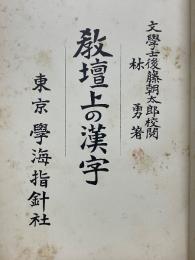 文學士後藤朝太郎校閲
林勇著
教壇上の漢字
東京學海指針社